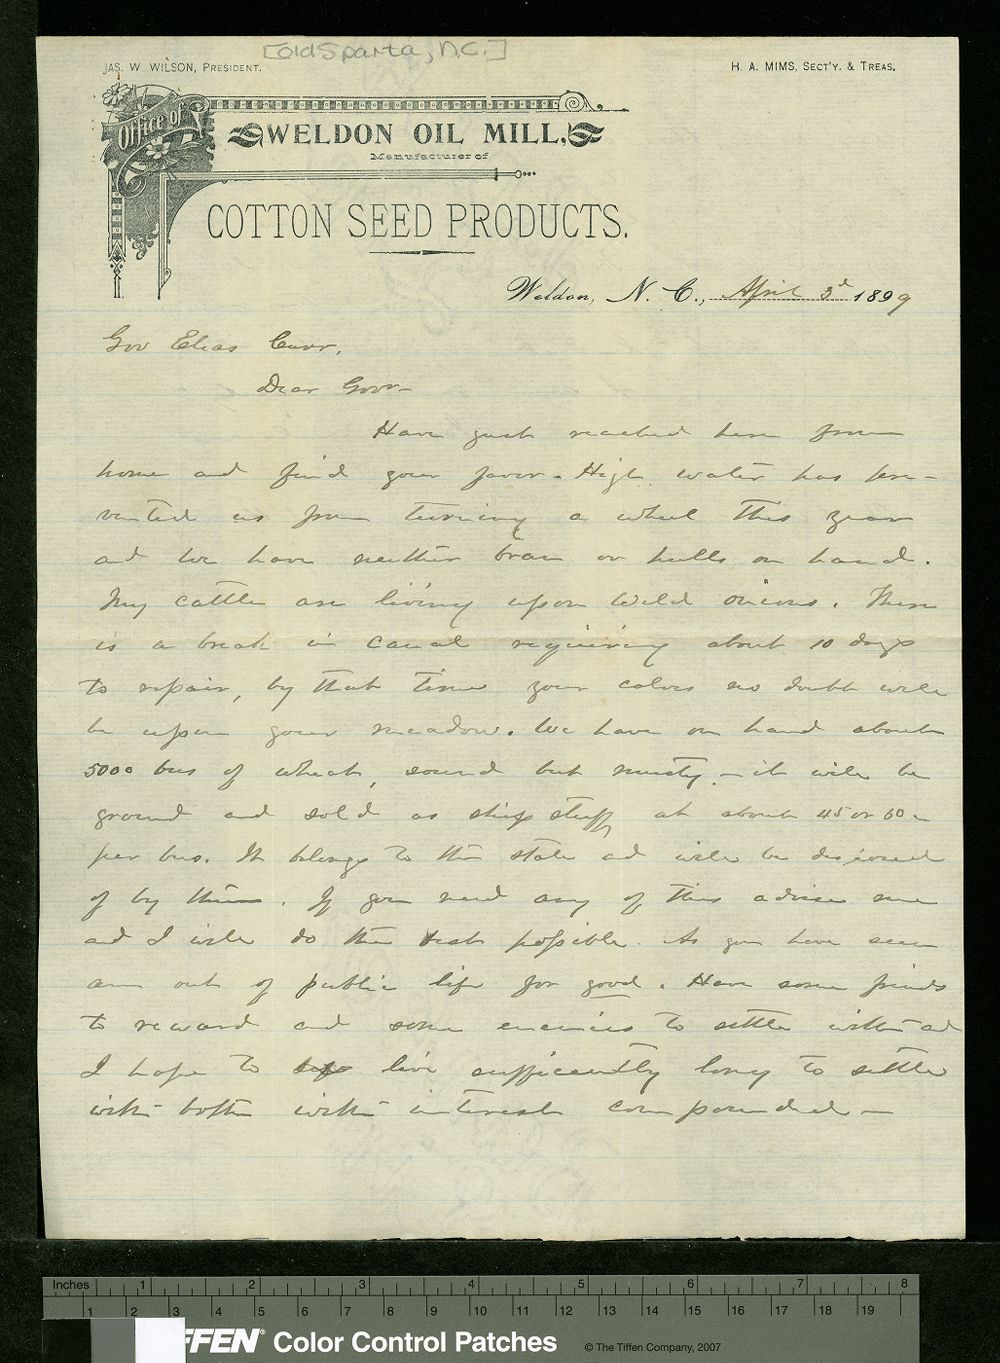 [Old Sparta, N.C.]
JAS. W. WILSON, PRESIDENT.
H. A. MIMS, SECT'Y. & TREAS.
Office of
WELDON OIL MILL,
Manufacturer of
COTTON SEED PRODUCTS.
Weldon, N. C., April 3d 1899
Gov Elias Carr,
Dear Govr-
Have just reached here from
home and find your favor. High water has pre-
vented us from turning a wheel this year
ad we have neither bran or hulls on hand.
My cattle are living upon wild onions. There
is a break in canal requiring about 10 days
to repair, by that time your calves no doubt will
be upon your meadow. We have on hand about
5000 bus of wheat, sound but musty - it will be
ground and sold as ship stuff at about 45 or 50 c
per bus. It belongs to the state ad will be disposed
of by them. If you need any of this advise me
and I will do the best possible. As you have seen
am out of public life for good. Have some friends
to reward and some enemies to settle with ad
I hope to live sufficiently long to settle
with both with interest compounded —
Inches 1 2 3 4 5 6 7 8
1 2 3 4 5 6 7 8 9 10 11 12 13 14 15 16 17 18 19
FFEN® Color Control Patches © The Tiffen Company, 2007